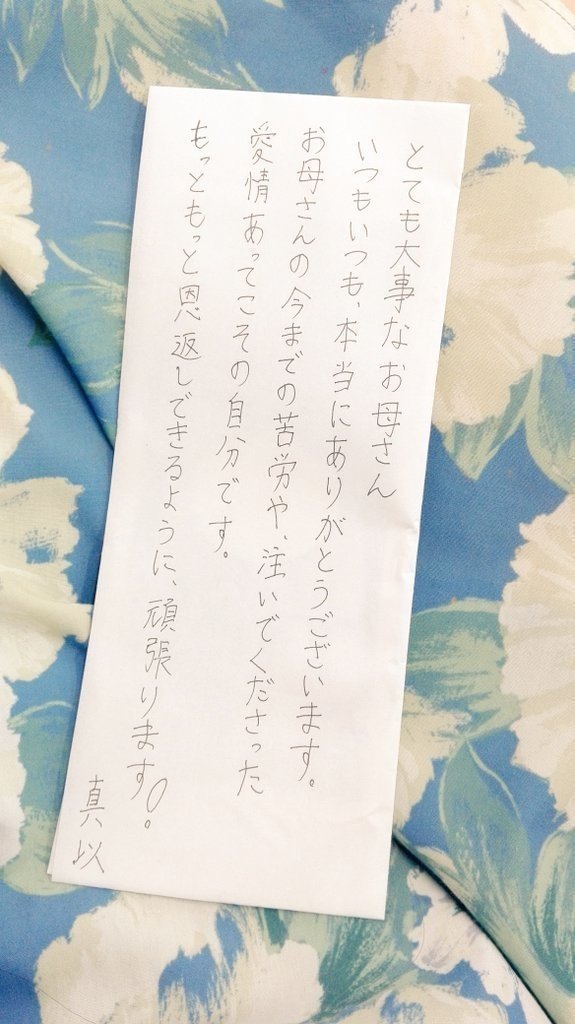 とても大事なお母さん
いつもいつも、本当にありがとうございます。
お母さんの今までの苦労や、注いでくださった
愛情あってこその自分です。
もっともっと恩返しできるように、頑張ります！。
真以